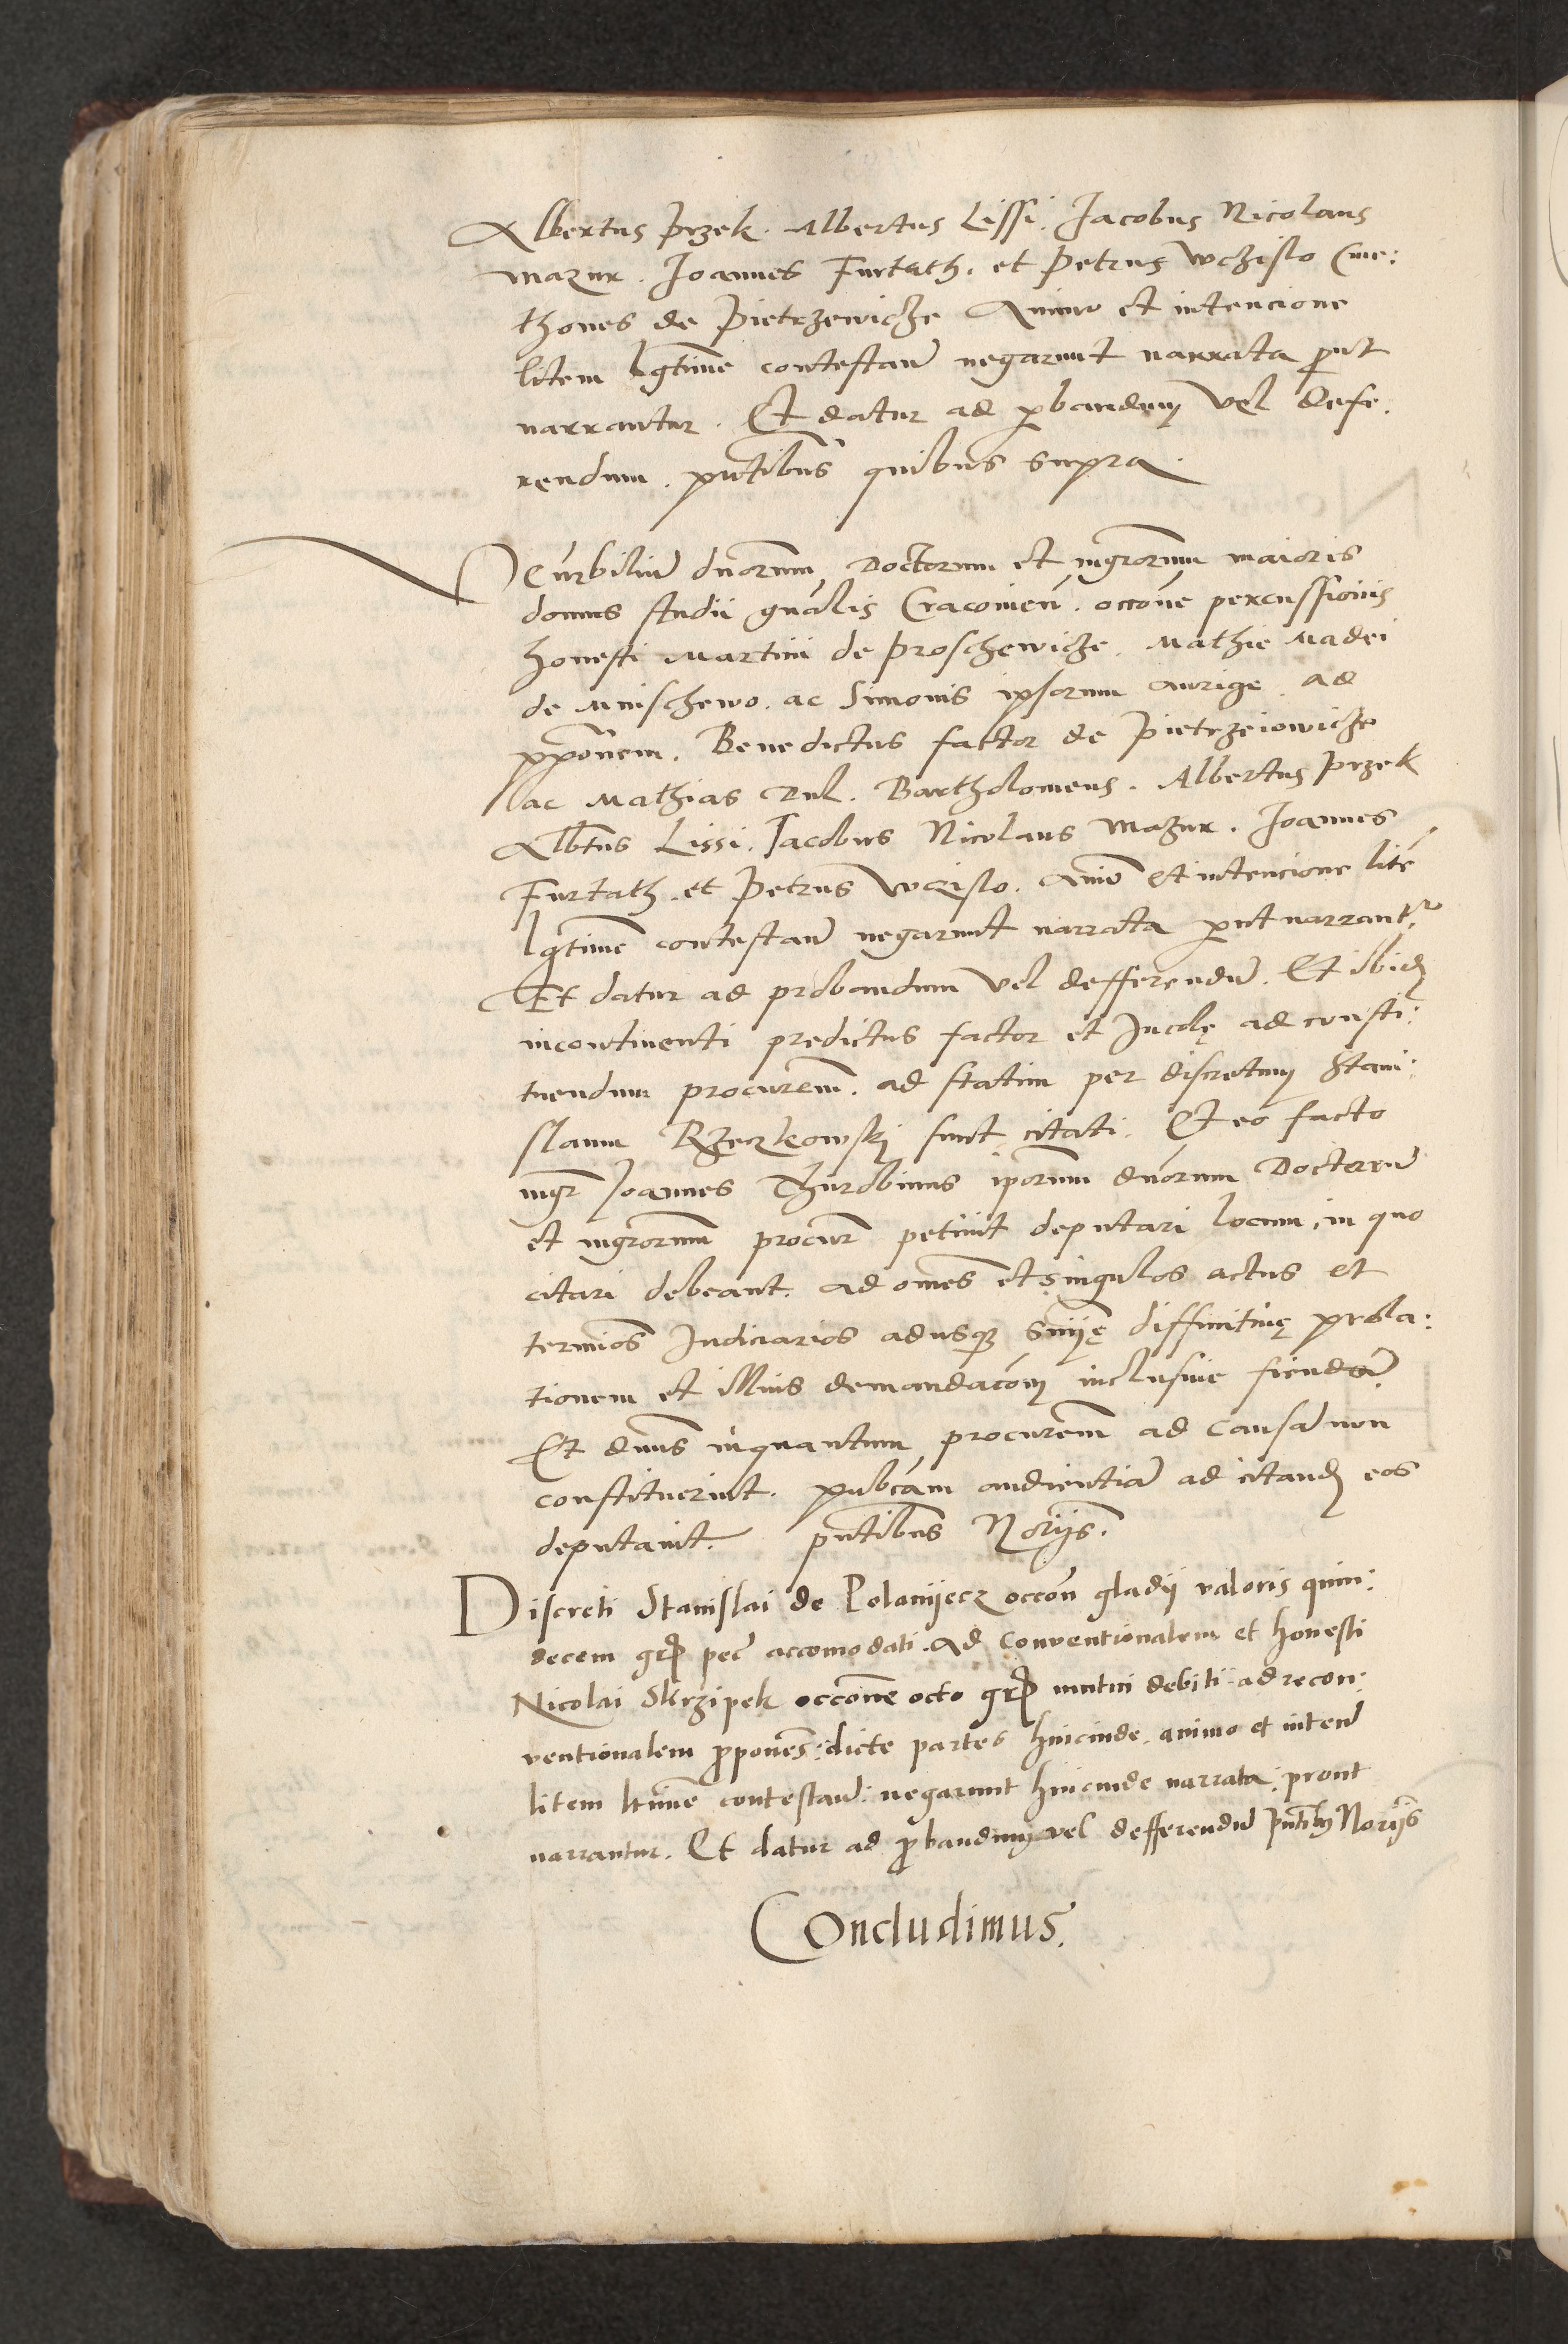 Albertus Przek. Albertus Lissi. Jacobus Nicolaus
mazur. Joannes Furtath. et Petrus wczislo Cme:
thones de Pietrzewicze Animo et intencione
litem lgtime contestan negarunt narrata put
narrantur. Et datur ad pbandum vel defe:
rendum. pntibus quibus supra.
Venrbiliu dnorum Doctorum et mgrorum maioris
domus studii gnalis Cracouien. occone percussionis
honesti Martini de Proschewicze. Mathie Madei
de Mnischewo. ac Simonis ipsorum aurige. ad
pponem. Benedictus factor de Pietrzeiowicze
ac Mathias Dul. Bartholomeus. Albertus Przek
Albtus Lissi. Jacobus Nicolaus Mazur. Joannes
Furtath. et Petrus wcislo. animo et intencione lite
lgtime contestan negarunt narrata put narrantr
Et datur ad probandum vel defferendu. Et ibid
incontinenti predictus factor et Incolę ad consti:
tuendum procurem. ad statim per discretum Stani:
slaum Rzeczkowski sunt citati. Et eo facto
mgr Joannes Thurobinus iporum dnorum Doctoru
et mgrorum procur petiuit deputari locum, in quo
citari debeant. ad omes et singulos actus et
termios Judiciarios adusq snię diffinitiuę prola:
tionem et illius demandacom inclusiue fiendos
Et dnus inquantum procurem ad causa non
constituerint. pubcam audientia ad citand eos
deputauit. pntibus Norijs.
Discreti Stanislai de Polanijecz occon gladij valoris quin:
decem gr pec accomodati. ad Conventionalem et honesti
Nicolai Skrzipek occone octo gr mutui debiti ad recon:
ventionalem ppones: dicte partes hincinde. animo et inten
litem ltime contestan: negarunt hincinde narrata: prout
narrantur. Et datur ad pbandum vel defferendu pntibus Norijs
Concludimus.